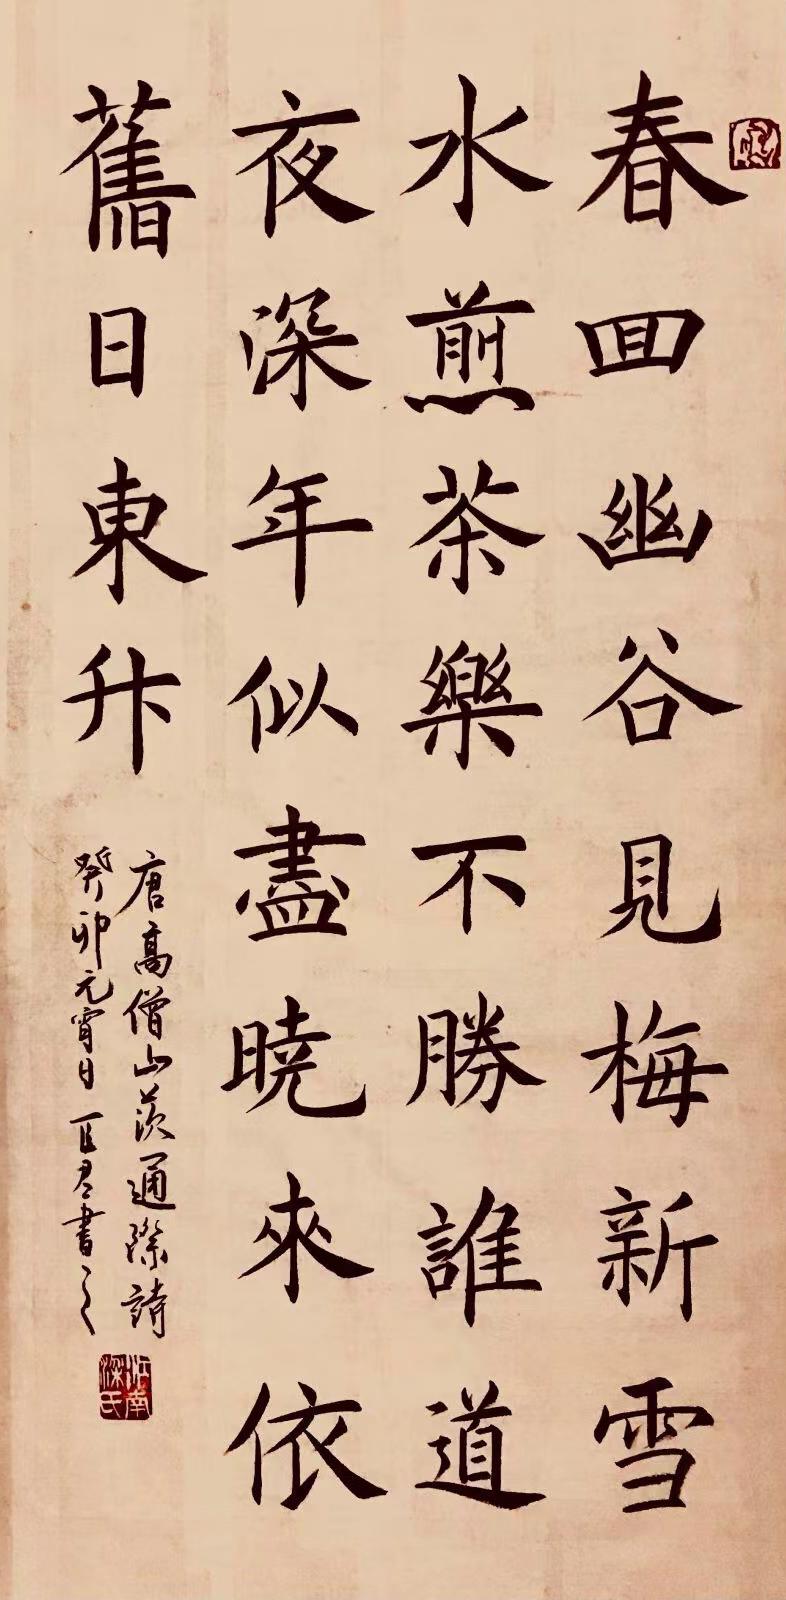 春回幽谷見梅新雪
水煎茶樂不勝誰道
夜深年似盡曉來依
舊日東升
唐高僧山茨通際詩
癸卯元宵日 君書之
江南
梁氏